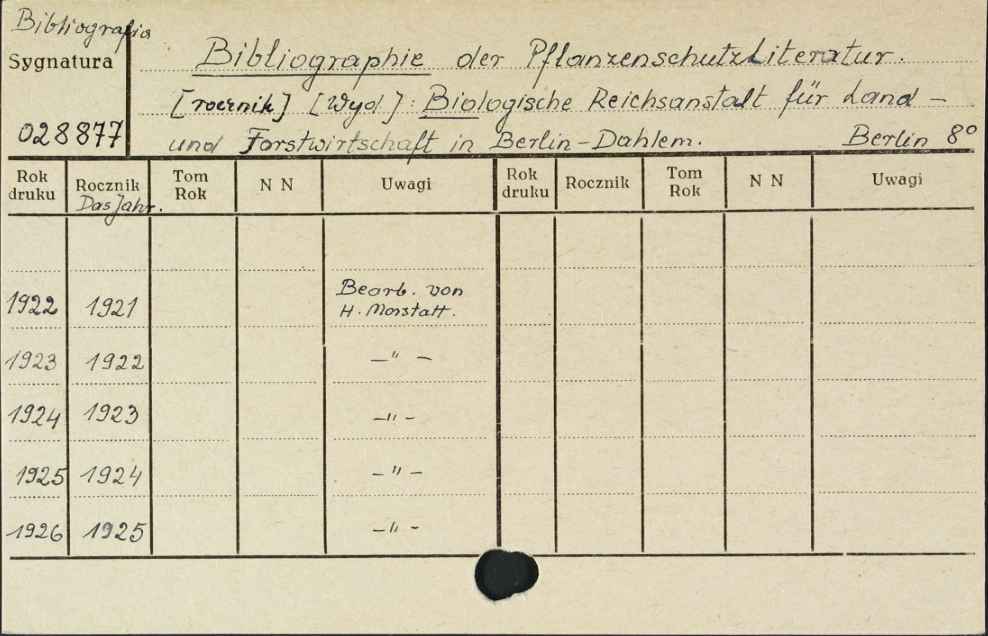 Bibliografia
Sygnatura
028877
Bibliographie der PflanzenschutzLiteratur.
[rocznik] [Wyd.]: Biologische Reichsanstalt für Land-
und Forstwirtschaft in Berlin-Dahlem. Berlin 8°
Rok druku Rocznik Das Jahr. Tom Rok N N Uwagi Rok druku Rocznik Tom Rok N N Uwagi
1922 1921 Bearb. von
H. Morstatt.
1923 1922 —"—
1924 1923 —"—
1925 1924 —"—
1926 1925 —"—